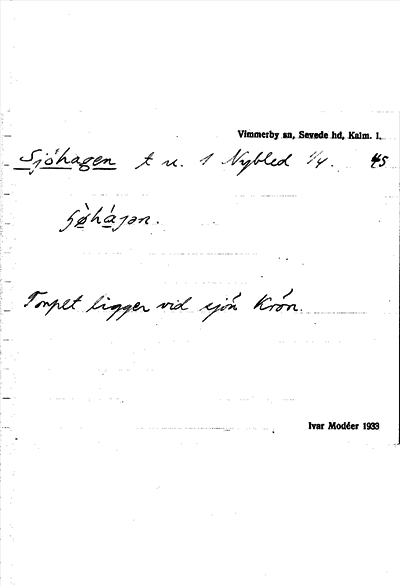 Vimmerby sn, Sevede hd, Kalm. l.
Sjöhagen t u. 1 Nybled 1/4. 45
Torpet ligger vid sjön Krön.
Ivar Modéer 1933